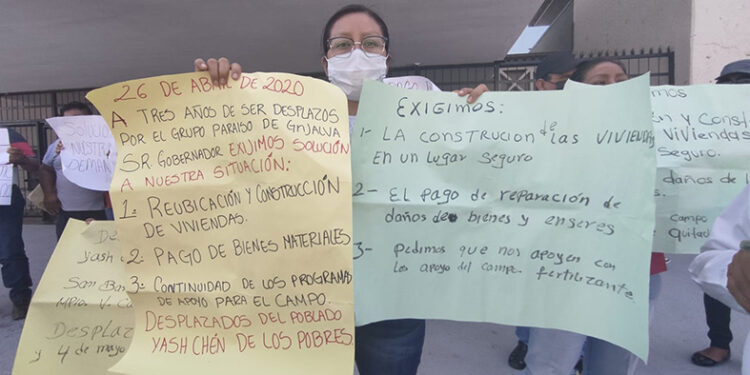 26 DE ABRAL DE 2020
A TRES AÑOS DE SER DESPLAZOS
POR EL GRUPO PARAISO DE GRIJALVA
SR GOBERNADOR EXIJIMOS SOLUCIÓN
A NUESTRA SITUACIÓN:
1= REUBICACIÓN Y CONSTRUCCIÓN
DE VIVIENDAS.
2= PAGO DE BIENES MATERIALES
3= CONTINUIDAD DE LOS PROGRAMAS
DE APOYO PARA EL CAMPO.
DESPLAZADOS DEL POBLADO
YASH CHÉN DE LOS POBRES.
EXIGIMOS:
1- LA CONSTRUCION de LAS VIVIENDAS
EN UN LUGAR SEGURO
2- El pago de reparación de
daños de bienes y enseres
3- Pedimos que nos apoyen con
los apoyo del campo fertilizante.
SOLUCIO
Nuest
DEMAN
Despl
yash c
San Bar
Mpio V. C
Desplaz
y 4 de mayo
mos
ón y Const
Viviendas
Seguro.
daños de l
campo
Quitad